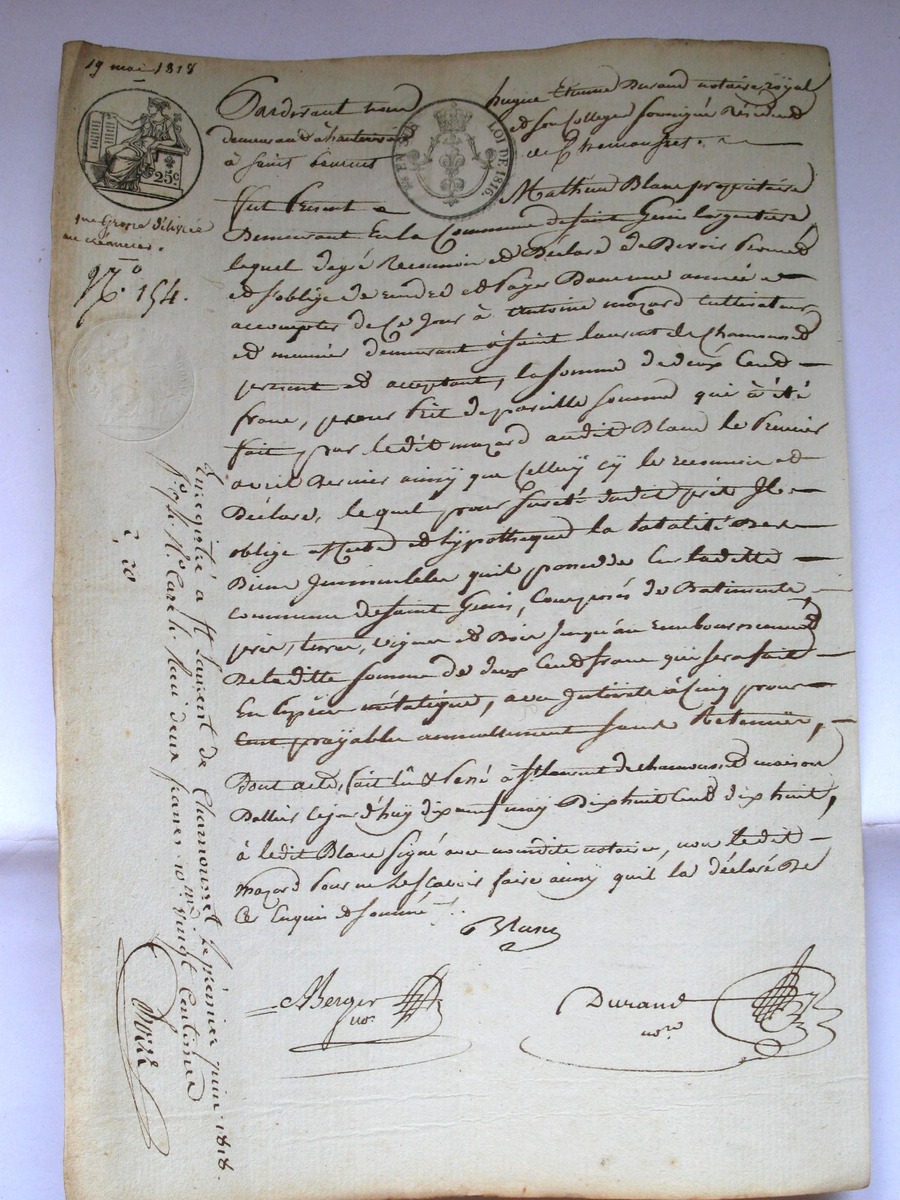 19 mai 1818
25c
LOI DE 1816.
une Grosse délivrée
au créancier.
N.º 154.
Pardevant nous hugue Etienne Durand notaire royal
demeurant à hauterivoire et son collegue soussigné Résidend
à Saint Laurent de Chamousset.
fut Présent Mathieu Blanc propriétaire
Demeurant En la Commune de Saint Genis largentiere
lequel degré Reconnoit et Déclare de Devoir Promet
et soblige de rendre et Payer Dans une année et
accompter de Ce Jour à Antoine mazard cultivateur
et munier demeurant à Saint laurent de Chamousset
présent et acceptant, la Somme de deux Cent
franc, pour Prêt de pareille Somme qui à été
fait, par le dit mazard audit Blanc le Premier
avril Dernier ainsy que Celluy cy le reconnoit et
Déclare, lequel pour Sureté dudit prêt Il
oblige affecte et hypotheque la totalité Des
Biens Immeubles quil possede En la ditte
commune de Saint Genis, Composés de Batiments
prés, terres, vignes et Bois Jusqu'au Remboursement
De la ditte Somme de deux Cent franc qui Sera fait
En Espèce métalique, avec Interets à Cinq pour
Cent payable annuellement Sans Retenüe,
Dont acte, fait lû & Passé à St laurent de chamousset maison
Dallier Le jourd'huy dix neuf may Dix huit Cent dix huit,
à ledit Blanc Signé avec nous dits notaire, non le dit
mazard Pour ne Le Scavoir faire ainsy quil la déclaré De
Ce Enquis et Sommé
Blanc
ABerger
no.
Durand
nore
Enregistré à St Laurent de Chamousset le premier juin 1818.
fo 96 Ro Case 1. Reçu deux francs 10me vingt Centimes
2, 20